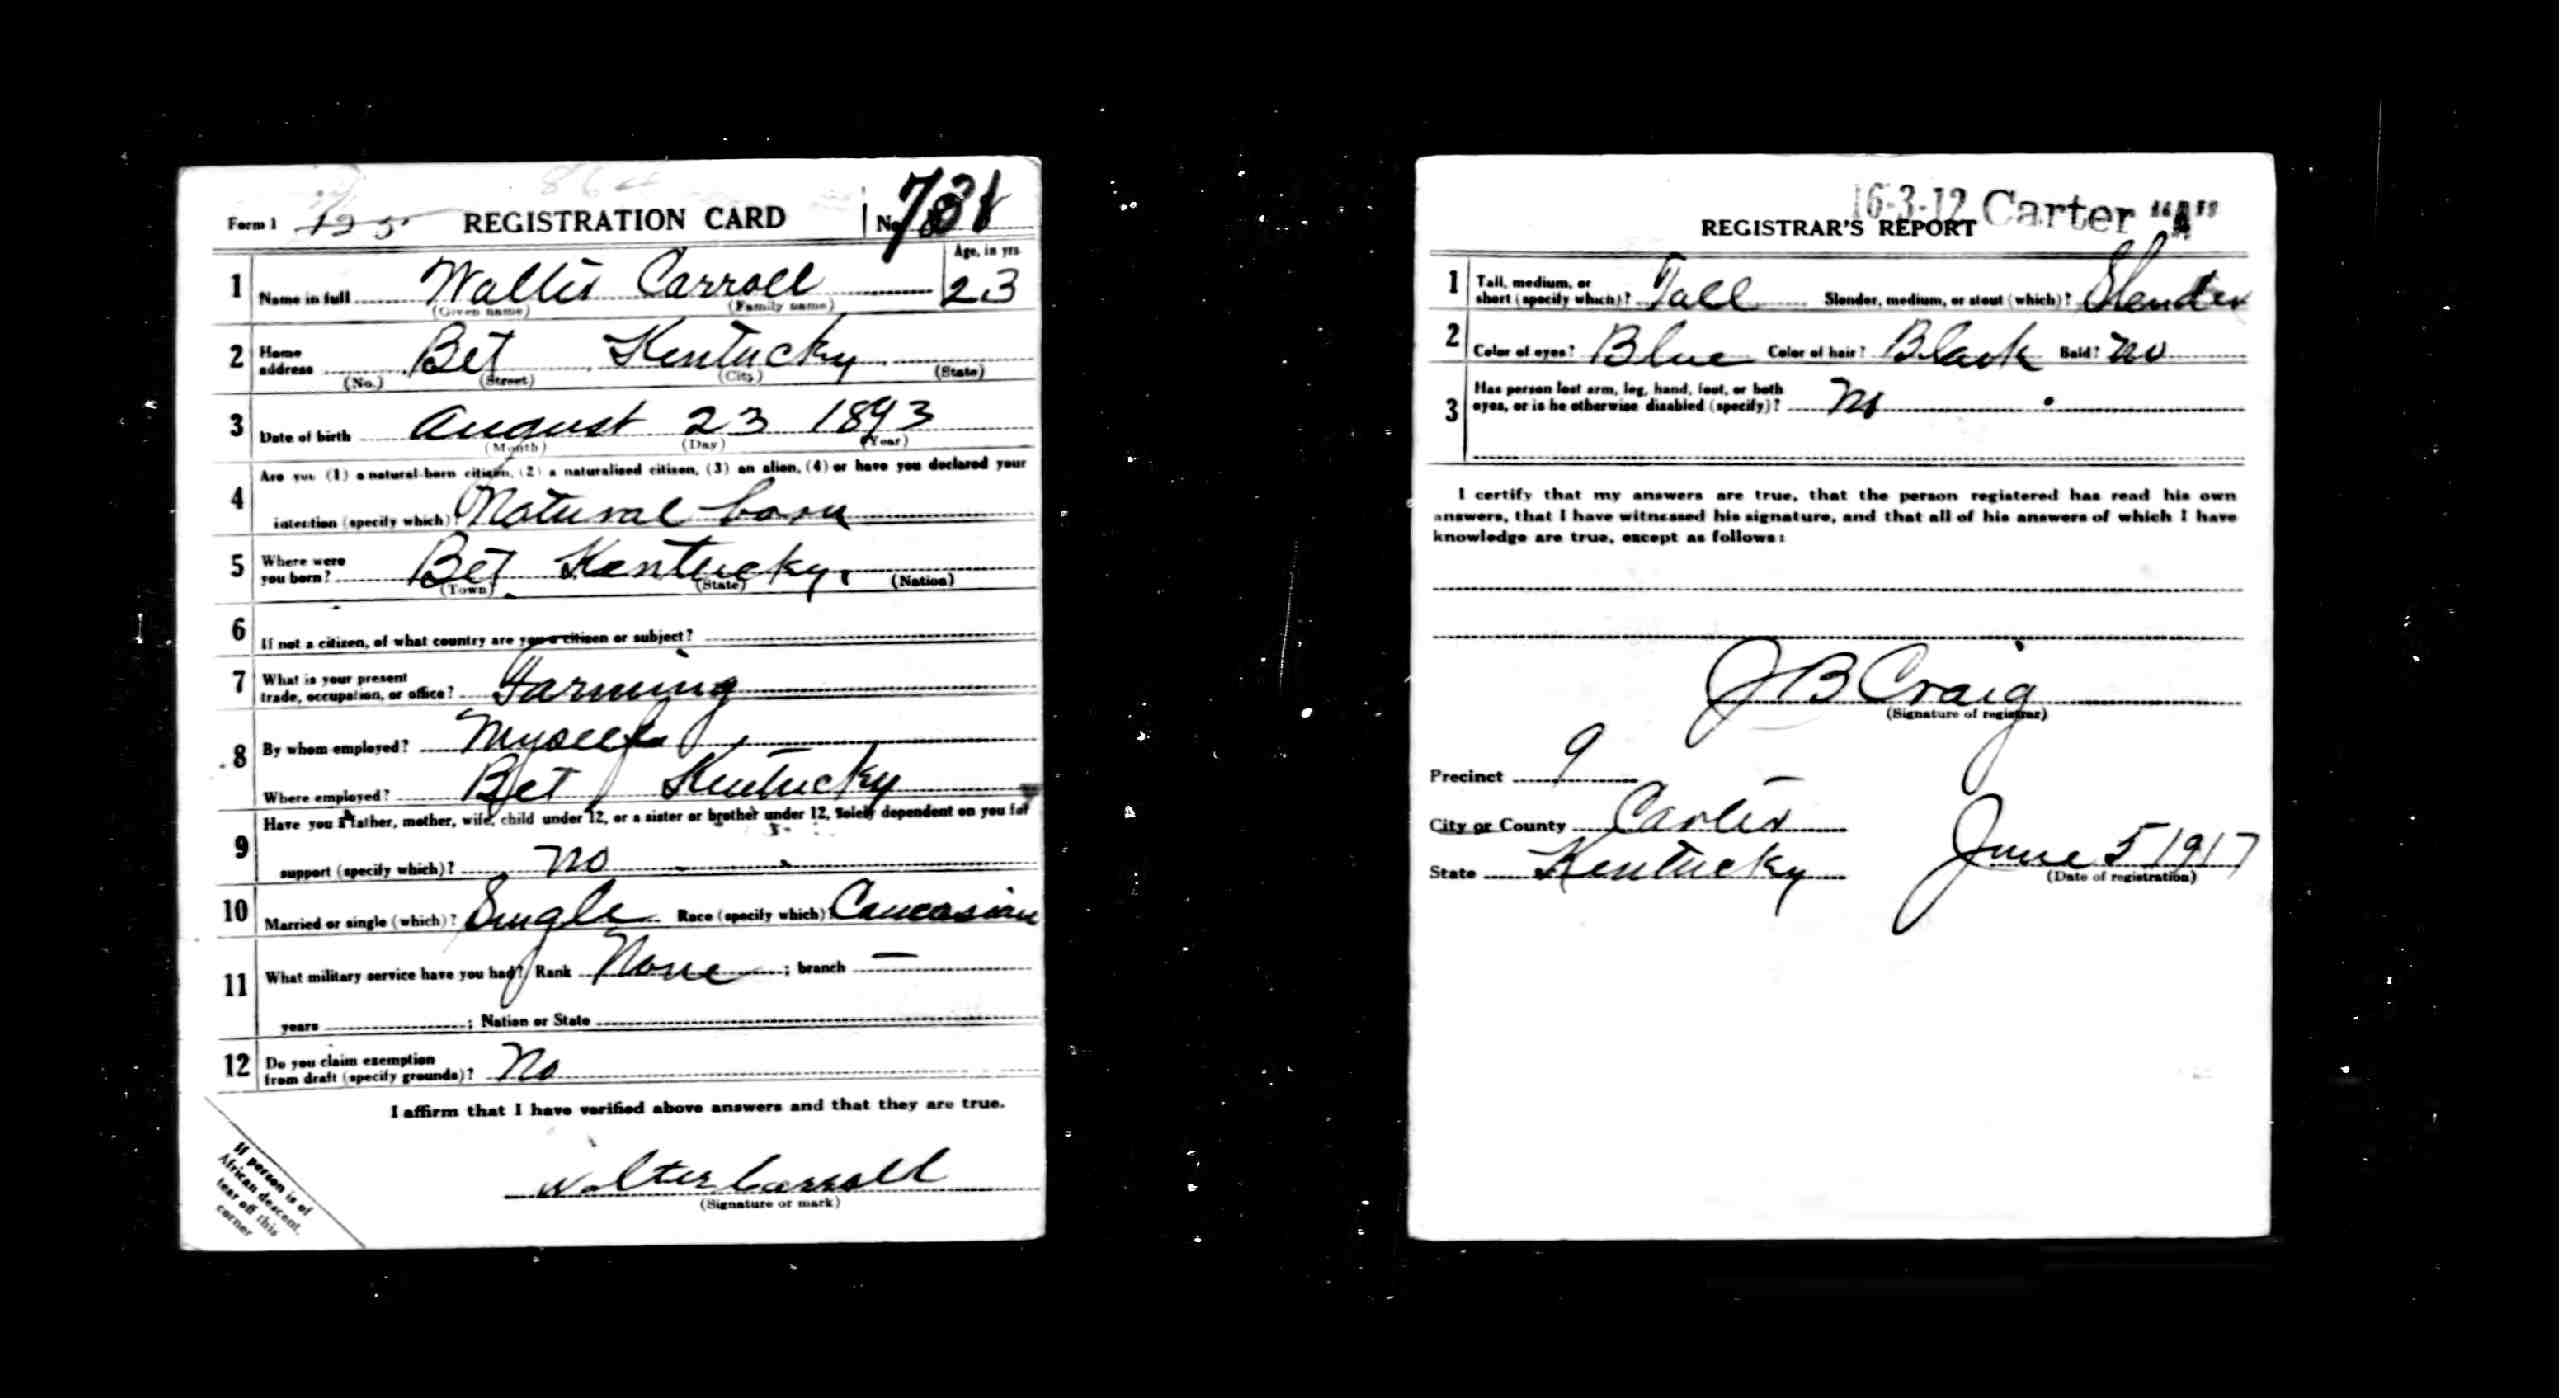 Form 1 125 REGISTRATION CARD No. 738
Age, in yrs.
1 Name in full Walter Carroll 23
(Given name) (Family name)
2 Home address Bet Kentucky
(No.) (Street) (City) (State)
3 Date of birth August 23 1893
(Month) (Day) (Year)
4 Are you (1) a natural-born citizen, (2) a naturalized citizen, (3) an alien, (4) or have you declared your
intention (specify which)? Natural born
5 Where were you born? Bet Kentucky.
(Town) (State) (Nation)
6 If not a citizen, of what country are you a citizen or subject?
7 What is your present
trade, occupation, or office? Farming
8 By whom employed? Myself
Where employed? Bet, Kentucky
9 Have you a father, mother, wife, child under 12, or a sister or brother under 12, solely dependent on you for
support (specify which)? No
10 Married or single (which)? Single Race (specify which)? Caucasian
11 What military service have you had? Rank None ; branch —
years ; Nation or State
12 Do you claim exemption
from draft (specify grounds)? No
I affirm that I have verified above answers and that they are true.
Walter Carroll
(Signature or mark)
If person is of
African descent,
tear off this
corner
16-3-12 Carter "A"
REGISTRAR'S REPORT
1 Tall, medium, or
short (specify which)? Tall Slender, medium, or stout (which)? Slender
2 Color of eyes? Blue Color of hair? Black Bald? No
3 Has person lost arm, leg, hand, foot, or both
eyes, or is he otherwise disabled (specify)? No
I certify that my answers are true, that the person registered has read his own
answers, that I have witnessed his signature, and that all of his answers of which I have
knowledge are true, except as follows:
J B Craig
(Signature of registrar)
Precinct 9
City or County Carter
State Kentucky June 5 1917
(Date of registration)